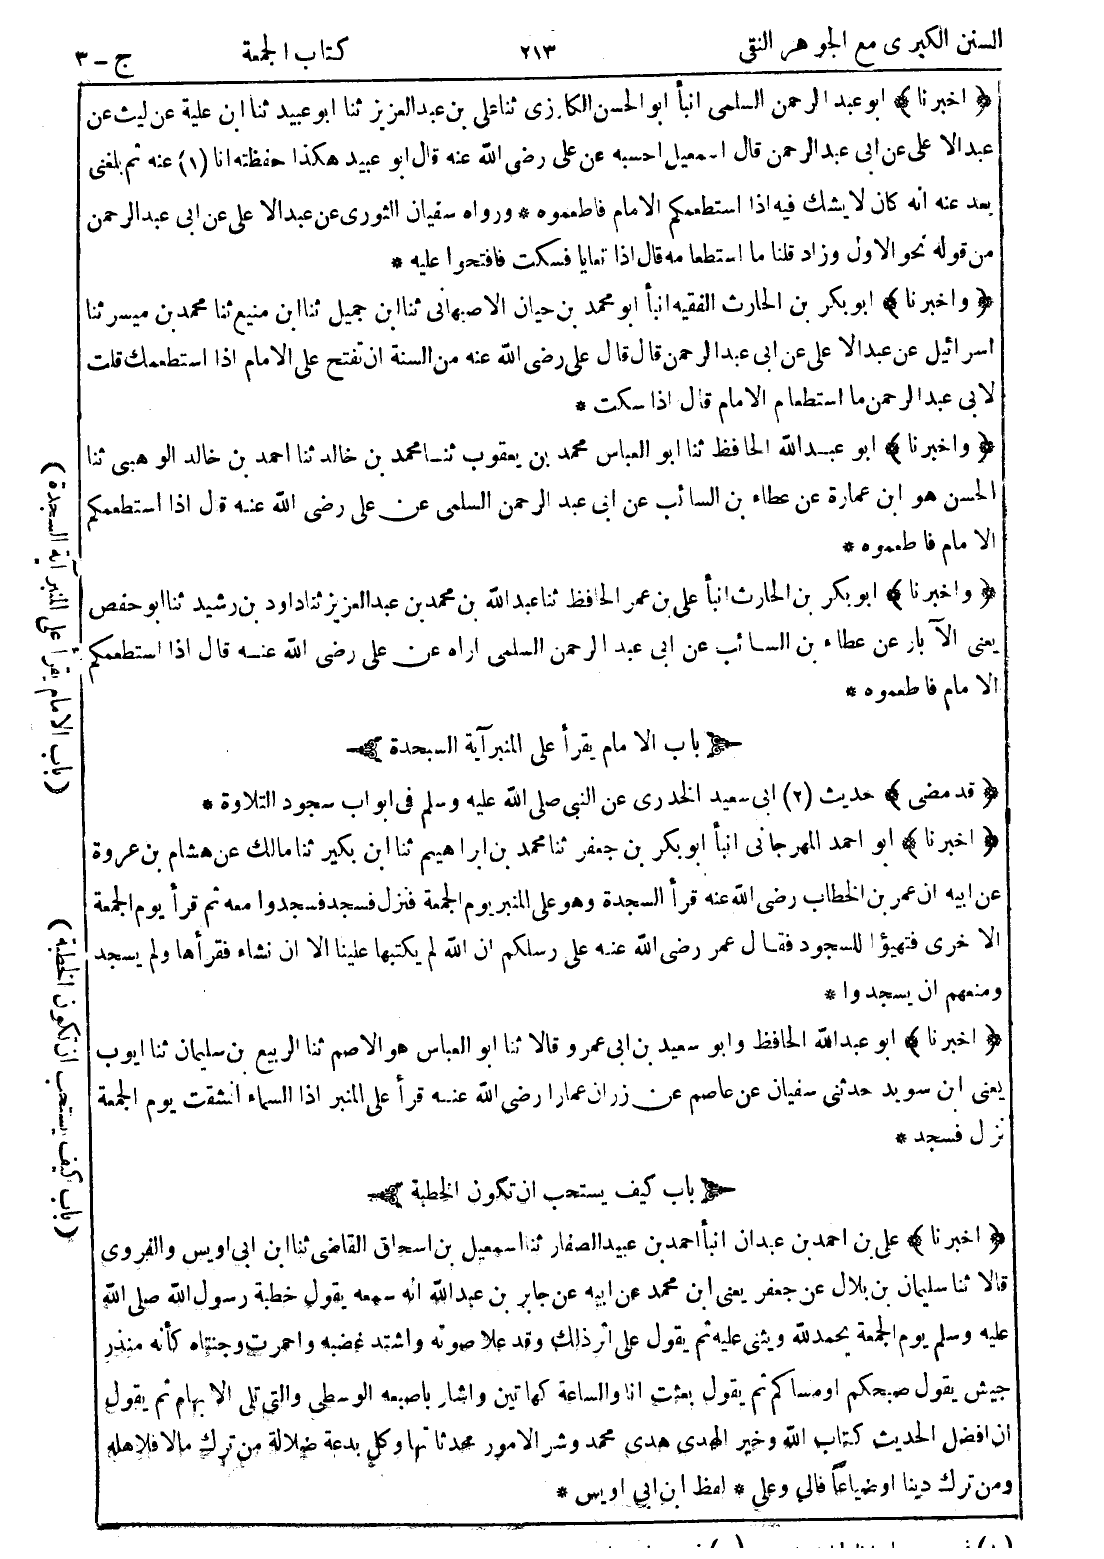 السنن الكبرى مع الجوهر النقى ٢١٣ كتاب الجمعة ج - ٣
﴿ اخبرنا ﴾ ابو عبد الرحمن السلمى انبأ ابو الحسن الكارزى ثنا على بن عبد العزيز ثنا ابو عبيد ثنا ابن علية عن ليث عن
عبد الاعلى عن ابى عبد الرحمن قال اسمعيل احسبه عن على رضى الله عنه قال ابو عبيد هكذا حفظته انا (١) عنه ثم بلغنى
بعد عنه انه كان لا يشك فيه اذا استطعمكم الامام فاطعموه * ورواه سفيان الثورى عن عبد الاعلى عن ابى عبد الرحمن
من قوله نحو الاول وزاد قلنا ما استطعامه قال اذا تعايا فسكت فافتحوا عليه *
﴿ واخبرنا ﴾ ابو بكر بن الحارث الفقيه انبأ ابو محمد بن حيان الاصبهانى ثنا ابن جميل ثنا ابن منيع ثنا محمد بن ميسر ثنا
اسرائيل عن عبد الاعلى عن ابى عبد الرحمن قال قال على رضى الله عنه من السنة ان تفتح على الامام اذا استطعمك قلت
لابى عبد الرحمن ما استطعام الامام قال اذا سكت *
﴿ واخبرنا ﴾ ابو عبد الله الحافظ ثنا ابو العباس محمد بن يعقوب ثنا محمد بن خالد ثنا احمد بن خالد الوهبى ثنا
الحسن هو ابن عمارة عن عطاء بن السائب عن ابى عبد الرحمن السلمى عن على رضى الله عنه قال اذا استطعمكم
الامام فاطعموه *
﴿ واخبرنا ﴾ ابو بكر بن الحارث انبأ على بن عمر الحافظ ثنا عبد الله بن محمد بن عبد العزيز ثنا داود بن رشيد ثنا ابو حفص
يعنى الآبار عن عطاء بن السائب عن ابى عبد الرحمن السلمى اراه عن على رضى الله عنه قال اذا استطعمكم
الامام فاطعموه *
باب الامام يقرأ على المنبر آية السجدة
﴿ قد مضى ﴾ حديث (٢) ابى سعيد الخدرى عن النبى صلى الله عليه وسلم فى ابواب سجود التلاوة *
﴿ اخبرنا ﴾ ابو احمد المهرجانى انبأ ابو بكر بن جعفر ثنا محمد بن ابراهيم ثنا ابن بكير ثنا مالك عن هشام بن عروة
عن ابيه ان عمر بن الخطاب رضى الله عنه قرأ السجدة وهو على المنبر يوم الجمعة فنزل فسجد فسجدوا معه ثم قرأ يوم الجمعة
الاخرى فتهيؤا للسجود فقال عمر رضى الله عنه على رسلكم ان الله لم يكتبها علينا الا ان نشاء فقرأها ولم يسجد
ومنعهم ان يسجدوا *
﴿ اخبرنا ﴾ ابو عبد الله الحافظ وابو سعيد بن ابى عمرو قالا ثنا ابو العباس هو الاصم ثنا الربيع بن سليمان ثنا ايوب
يعنى ابن سويد حدثنى سفيان عن عاصم عن زر ان عمارا رضى الله عنه قرأ على المنبر اذا السماء انشقت يوم الجمعة
نزل فسجد *
باب كيف يستحب ان تكون الخطبة
﴿ اخبرنا ﴾ على بن احمد بن عبدان انبأ احمد بن عبيد الصفار ثنا اسمعيل بن اسحاق القاضى ثنا ابن ابى اويس والفروى
قالا ثنا سليمان بن بلال عن جعفر يعنى ابن محمد عن ابيه عن جابر بن عبد الله انه سمعه يقول خطبة رسول الله صلى الله
عليه وسلم يوم الجمعة يحمد لله ويثنى عليه ثم يقول على اثر ذلك وقد علا صوته واشتد غضبه واحمرت وجنتاه كأنه منذر
جيش يقول صبحكم او مساكم ثم يقول بعثت انا والساعة كهاتين واشار باصبعه الوسطى والتى تلى الابهام ثم يقول
ان افضل الحديث كتاب الله وخير الهدى هدى محمد وشر الامور محدثاتها وكل بدعة ضلالة من ترك مالا فلاهله
ومن ترك دينا او ضياعاً فالي وعلي * لفظ ابن ابي اويس *
(باب الامام يقرأ على المنبر آية السجدة)
(باب كيف يستحب ان تكون الخطبة)